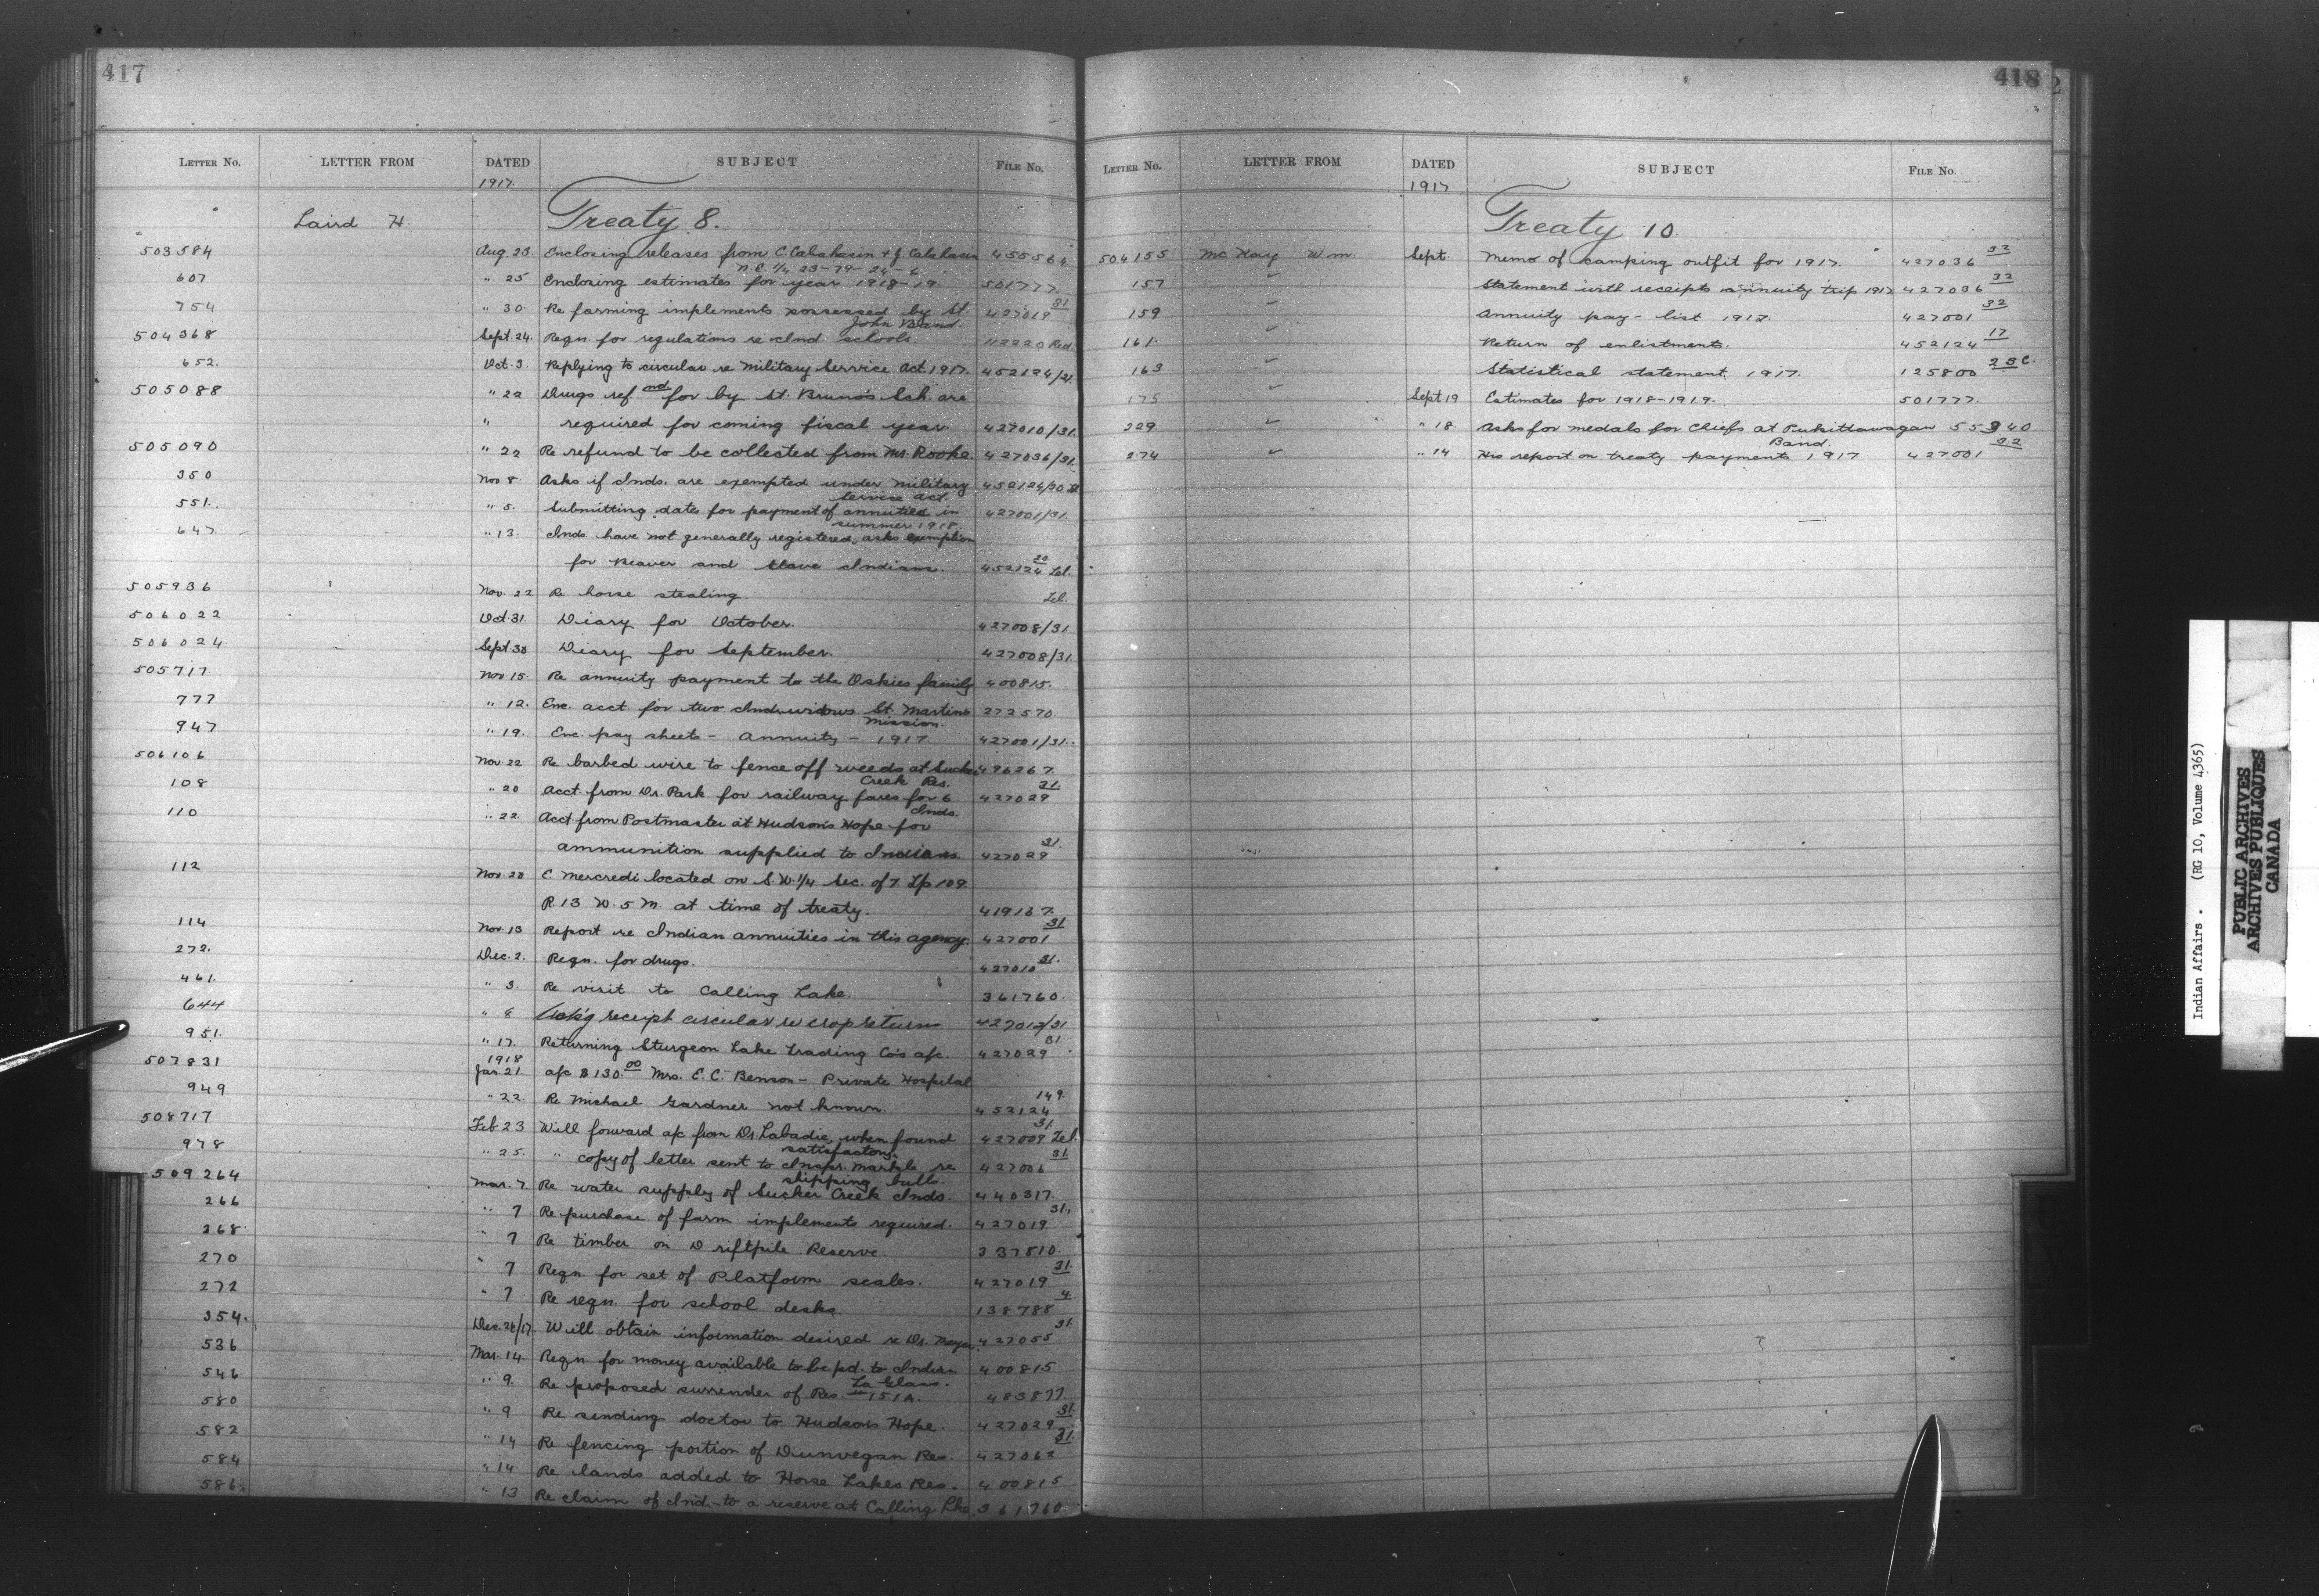 417
LETTER No. LETTER FROM DATED SUBJECT FILE No.
1917.
Laird H. Treaty 8.
503584 Aug. 23 Enclosing releases from C. Calahasen + J. Calahasen 455564.
N.E. 1/4 23-79-24-6
607 " 25 Enclosing estimates for year 1918-19. 501777.
754 " 30 Re farming implements possessed by St. 427019 31
John Band.
504368 Sept. 24. Reqn. for regulations re Ind. schools. 112220 Red.
652. Oct. 3. Replying to circular re Military Service Act. 1917. 452124/21.
505088 " 22 Drugs ref nd for by St. Bruno's Sch. are
" required for coming fiscal year. 427010/31.
505090 " 22 Re refund to be collected from Mr. Rooke. 427036/31.
350 Nov. 8 Asks if Inds. are exempted under Military 452124/20
Service Act.
551. " 5. Submitting dates for payment of annuities in 427001/31.
summer 1918.
647 " 13. Inds. have not generally registered, asks exemption
for Beaver and Slave Indians. 452124 20 Tel.
505936 Nov. 22 Re horse stealing. Tel.
506022 Oct. 31. Diary for October. 427008/31
506024 Sept. 30 Diary for September. 427008/31.
505717 Nov. 15 Re annuity payment to the Oskies family 400815.
777 " 12. Enc. acct for two Ind. widows St. Martins 272570.
Mission.
947 " 19. Enc. pay sheets - annuity - 1917 427001/31.
506106 Nov. 22 Re barbed wire to fence off weeds at Sucker 496267.
Creek Res.
108 " 20 Acct. from Dr. Park for railway fares for 6 427029 31.
Inds.
110 " 22. Acct. from Postmaster at Hudson's Hope for
ammunition supplied to Indians. 427029 31.
112 Nov. 20 C. Mercredi located on S.W. 1/4 Sec. of 7. Tp 109.
R. 13 W. 5 M. at time of treaty. 419167.
114 Nov. 13 Report re Indian annuities in this agency. 427001 31
272. Dec. 2. Reqn. for drugs. 427010 31.
461. " 3. Re visit to Calling Lake. 361760.
644 " 8 Ackg receipt circular re crop return 427012/31
951. " 17. Returning Sturgeon Lake Trading Co's a/c. 427029 31.
1918
507831 Jan. 21 a/c $130.00 Mrs. E. C. Benson - Private Hospital
949 " 22. Re Michael Gardner not known. 452124 149.
508717 Feb 23 Will forward a/c from Dr. Labadie, when found 427009 31. Tel.
satisfactory.
978 " 25. " copy of letter sent to Inspr. Markle re 427006 31.
shipping bulls.
509264 Mar. 7 Re water supply of Sucker Creek Inds. 440317.
266 " 7 Re purchase of farm implements required. 427019 31.
268 " 7 Re timber on Driftpile Reserve. 337810.
270 " 7 Reqn. for set of Platform scales. 427019 31.
272 " 7 Re reqn. for school desks. 138788 4
354. Dec. 26/17. Will obtain information desired re Dr. 427055 31.
536 Mar. 14. Reqn. for money available to be pd. to Indian 400815
La Glass.
546 " 9. Re proposed surrender of Res. # 151A. 483877
580 " 9 Re sending doctor to Hudson's Hope. 427029 31.
582 " 14 Re fencing portion of Dunvegan Res. 427062 31.
584 " 14 Re lands added to Horse Lakes Res. 400815
586. " 13 Re claim of Ind. to a reserve at Calling Lke. 361760.
418
LETTER No. LETTER FROM DATED SUBJECT FILE No.
1917
Treaty 10.
504155 McKay Wm. Sept. Memo of camping outfit for 1917. 427036 32
157 ✓ Statement with receipts annuity trip 1917 427036 32
159 ✓ Annuity pay-list 1917. 427001 32
161. ✓ Return of enlistments. 452124 17
163 ✓ Statistical statement 1917. 125800 23C.
175 ✓ Sept. 19 Estimates for 1918-1919. 501777.
229 ✓ " 18. Asks for medals for Chiefs at Pukittawagan 55940
Band.
274 ✓ " 14 His report on treaty payments 1917 427001 32
Indian Affairs. (RG 10, Volume 4365)
PUBLIC ARCHIVES
ARCHIVES PUBLIQUES
CANADA